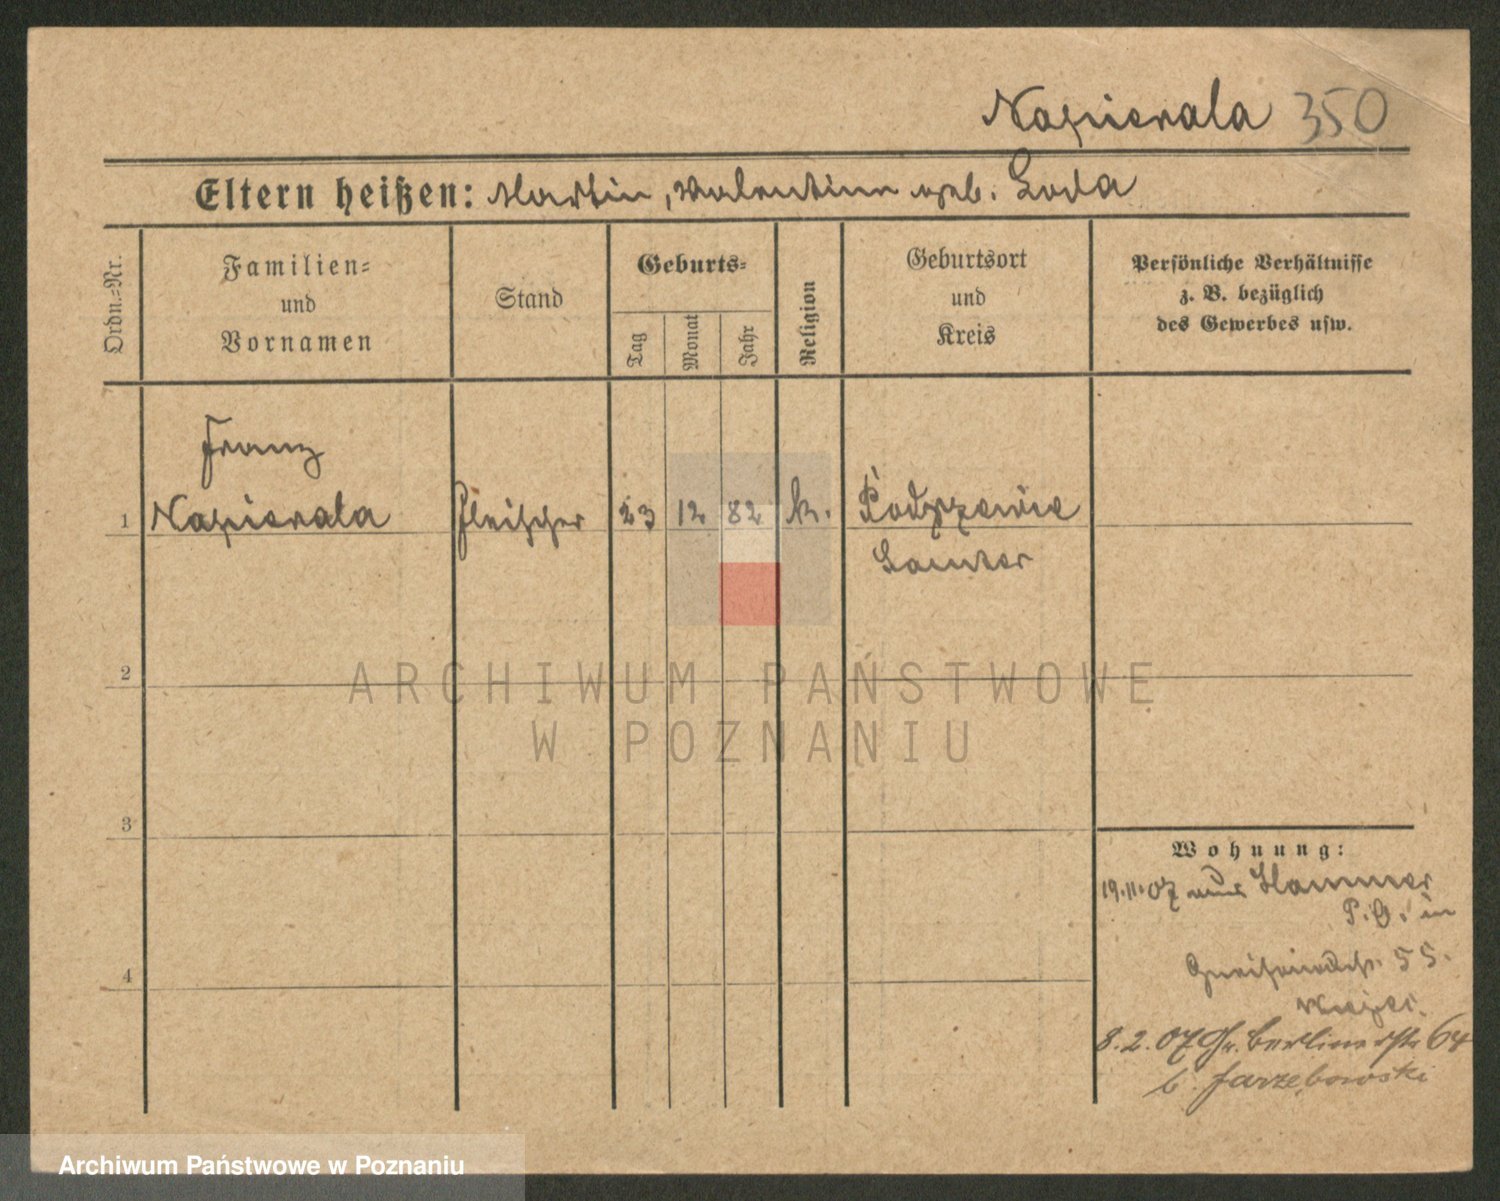 Napierala 350
Eltern heißen: Martin, Valentine geb. Loda
Ordn.=Nr.
Familien=
und
Vornamen
Stand
Geburts=
Tag
Monat
Jahr
Religion
Geburtsort
und
Kreis
Persönliche Verhältnisse
z. B. bezüglich
des Gewerbes usw.
Franz
1 Napierala Fleischer 23 12 82 k. Podrzewie
Samter
2
3
4
Wohnung:
19.11.07 aus Hammer
P.O. in
55.
8.2.07 Gr. Berlinerstr 64
b. Jarzebowski
ARCHIWUM PAŃSTWOWE
W POZNANIU
Archiwum Państwowe w Poznaniu